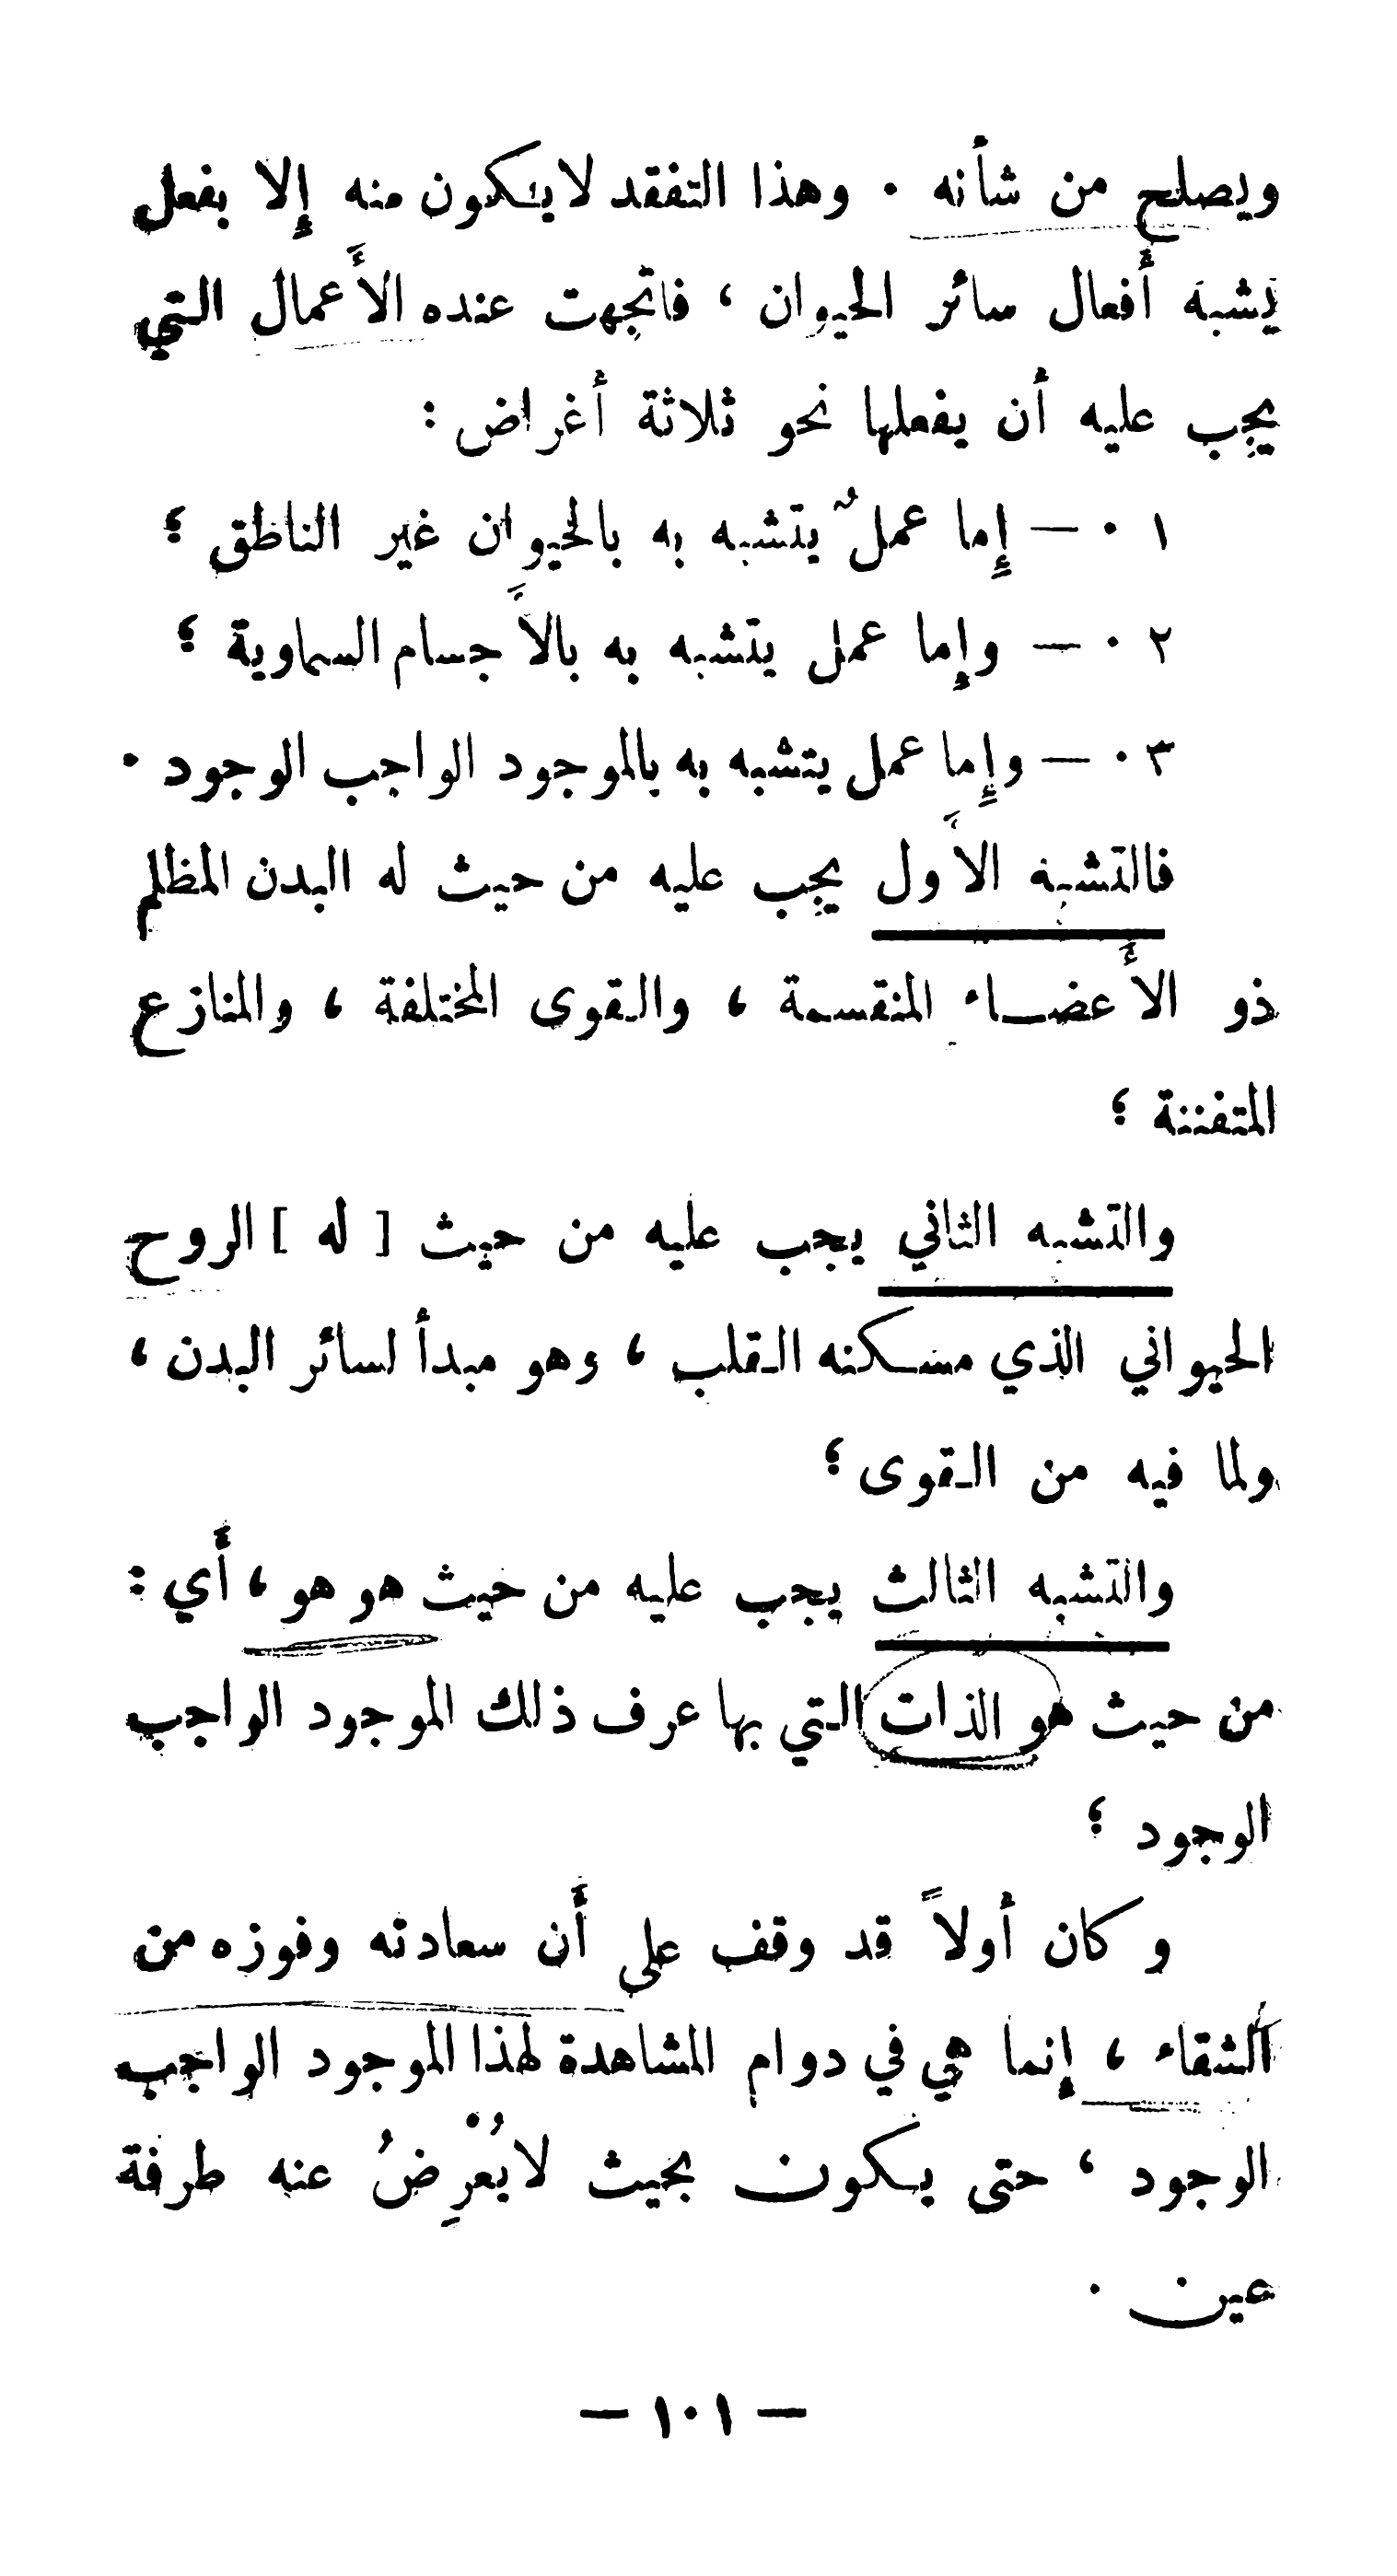 ويصلح من شأنه . وهذا التفقد لا يكون منه إلا بفعل
يشبه أفعال سائر الحيوان ، فاتجهت عنده الأعمال التي
يجب عليه أن يفعلها نحو ثلاثة أغراض :
١ . — إما عملٌ يتشبه به بالحيوان غير الناطق ؛
٢ . — وإما عمل يتشبه به بالأجسام السماوية ؛
٣ . — وإما عمل يتشبه به بالموجود الواجب الوجود .
فالتشبه الأول يجب عليه من حيث له البدن المظلم
ذو الأعضاء المنقسمة ، والقوى المختلفة ، والمنازع
المتفننة ؛
والتشبه الثاني يجب عليه من حيث [ له ] الروح
الحيواني الذي مسكنه القلب ، وهو مبدأ لسائر البدن ،
ولما فيه من القوى ؛
والتشبه الثالث يجب عليه من حيث هو هو ، أي :
من حيث هو الذات التي بها عرف ذلك الموجود الواجب
الوجود ؛
وكان أولاً قد وقف على أن سعادته وفوزه من
الشقاء ، إنما هي في دوام المشاهدة لهذا الموجود الواجب
الوجود ، حتى يكون بحيث لا يُعْرِضُ عنه طرفة
عين .
— ١٠١ —